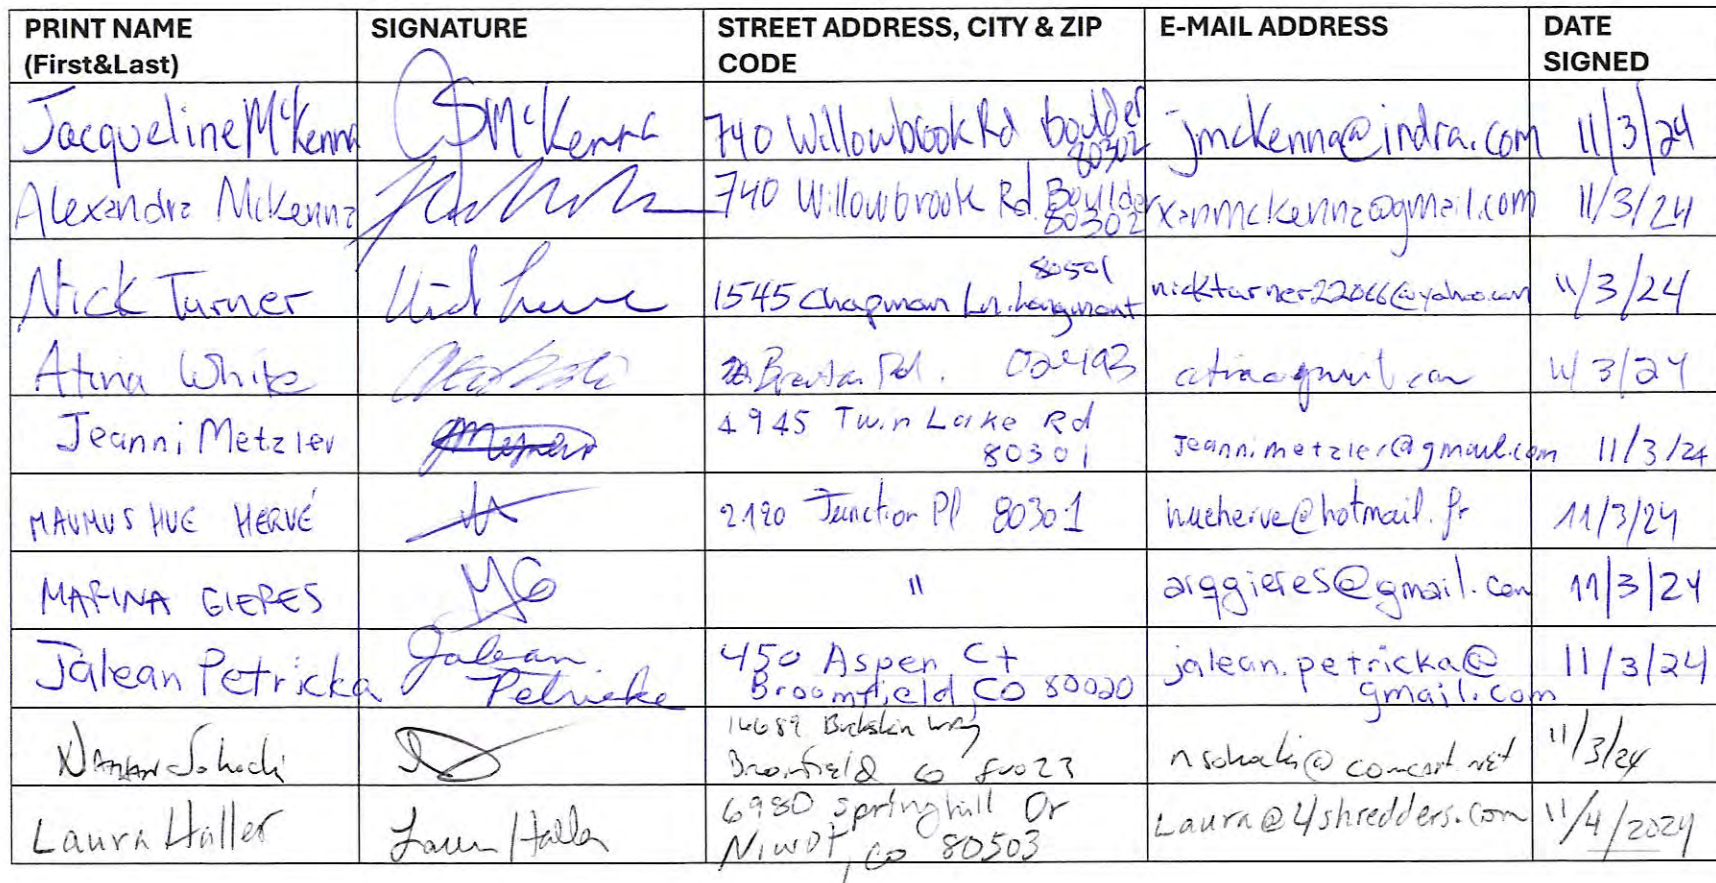 PRINT NAME SIGNATURE STREET ADDRESS, CITY & ZIP E-MAIL ADDRESS DATE
(First&Last) CODE SIGNED
Jacqueline McKenna JSMcKenna 740 Willowbrook Rd boulder 80302 jmckenna@indra.com 11/3/24
Alexandra McKenna 740 Willowbrook Rd. Boulder 80302 xanmckenna@gmail.com 11/3/24
Nick Turner 1545 Chapman Ln. Longmont 80501 nickturner22066@yahoo.com 11/3/24
Atina White Rd. 02493 11/3/24
Jeanni Metzler 4945 Twin Lake Rd 80301 jeanni.metzler@gmail.com 11/3/24
MAUMUS HUE HERVÉ 2190 Junction Pl 80301 hueherve@hotmail.fr 11/3/24
MARINA GIERES MG " arggieres@gmail.com 11/3/24
Jalean Petricka Jalean Petricka 450 Aspen Ct jalean.petricka@ 11/3/24
Broomfield, CO 80020 gmail.com
14689 Buckskin Way
Broomfield CO 80023 @comcast.net 11/3/24
Laura Haller Laura Haller 6980 Springhill Dr Laura@4shredders.com 11/4/2024
Niwot, CO 80503